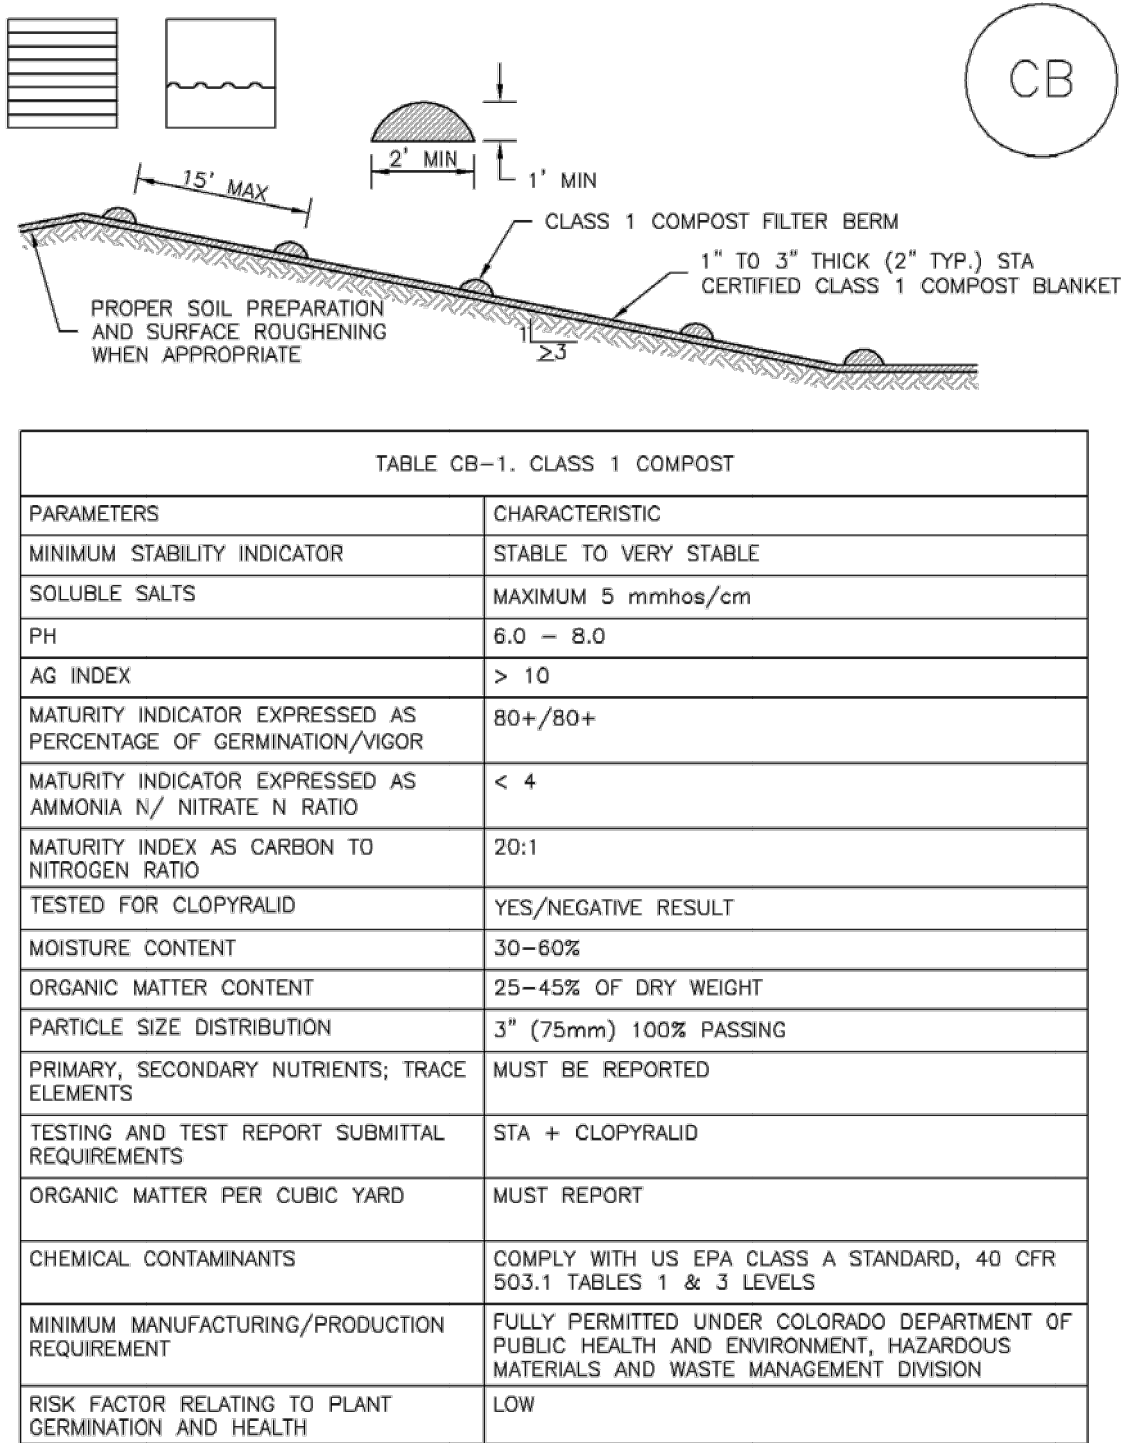 CB
2' MIN
1' MIN
15' MAX
CLASS 1 COMPOST FILTER BERM
1" TO 3" THICK (2" TYP.) STA
CERTIFIED CLASS 1 COMPOST BLANKET
PROPER SOIL PREPARATION
AND SURFACE ROUGHENING
WHEN APPROPRIATE
1
≥3
TABLE CB-1. CLASS 1 COMPOST
PARAMETERS
CHARACTERISTIC
MINIMUM STABILITY INDICATOR
STABLE TO VERY STABLE
SOLUBLE SALTS
MAXIMUM 5 mmhos/cm
PH
6.0 - 8.0
AG INDEX
> 10
MATURITY INDICATOR EXPRESSED AS
PERCENTAGE OF GERMINATION/VIGOR
80+/80+
MATURITY INDICATOR EXPRESSED AS
AMMONIA N/ NITRATE N RATIO
< 4
MATURITY INDEX AS CARBON TO
NITROGEN RATIO
20:1
TESTED FOR CLOPYRALID
YES/NEGATIVE RESULT
MOISTURE CONTENT
30-60%
ORGANIC MATTER CONTENT
25-45% OF DRY WEIGHT
PARTICLE SIZE DISTRIBUTION
3" (75mm) 100% PASSING
PRIMARY, SECONDARY NUTRIENTS; TRACE
ELEMENTS
MUST BE REPORTED
TESTING AND TEST REPORT SUBMITTAL
REQUIREMENTS
STA + CLOPYRALID
ORGANIC MATTER PER CUBIC YARD
MUST REPORT
CHEMICAL CONTAMINANTS
COMPLY WITH US EPA CLASS A STANDARD, 40 CFR
503.1 TABLES 1 & 3 LEVELS
MINIMUM MANUFACTURING/PRODUCTION
REQUIREMENT
FULLY PERMITTED UNDER COLORADO DEPARTMENT OF
PUBLIC HEALTH AND ENVIRONMENT, HAZARDOUS
MATERIALS AND WASTE MANAGEMENT DIVISION
RISK FACTOR RELATING TO PLANT
GERMINATION AND HEALTH
LOW